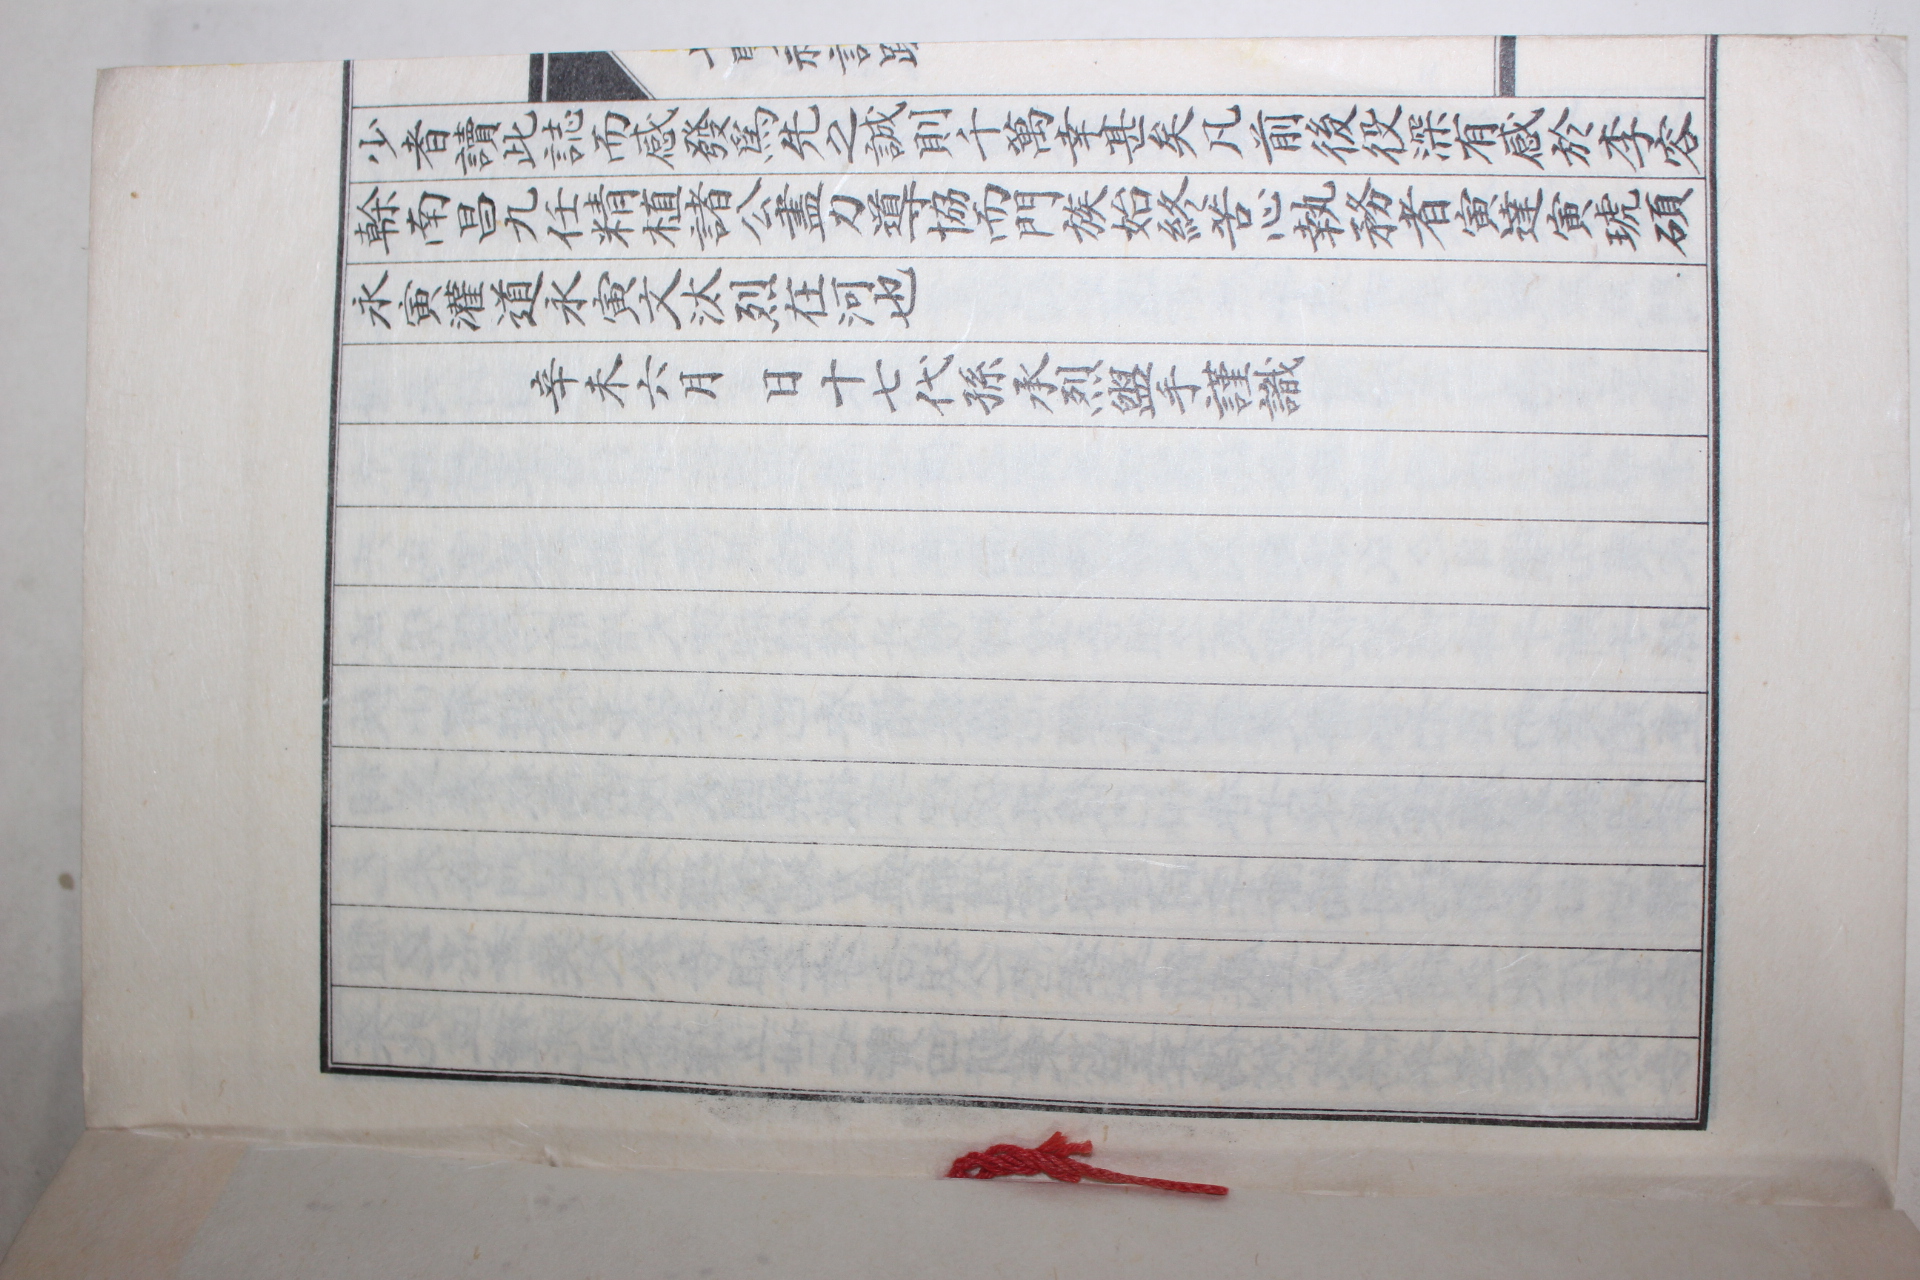 少者讀此誌而感發爲先之誠則千萬幸甚矣凡前後役深有感於李容
幹南昌九任精植諸公盡力導協而門族始終苦心執務者寅達寅琥碩
永寅灌道永寅文汰烈在河也
辛未六月 日十七代孫承烈盥手謹識